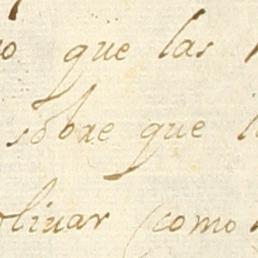 que las
sobre que
olivar (como